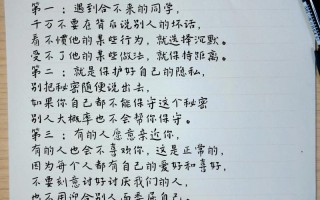 第一：遇到合不来的同学，
千万不要在背后说别人的坏话，
看不惯他的某些行为，就选择沉默。
受不了他的某些做法，就保持距离。
第二：就是保护好自己的隐私，
别把秘密随便说出去，
如果你自己都不能保守这个秘密
别人大概率也不会帮你保守。
第三：有的人愿意亲近你，
有的人也会不喜欢你，这是正常的，
因为每个人都有自己的爱好和喜好，
不要刻意讨好讨厌我们的人，
也不用迎合别人而委屈自己。